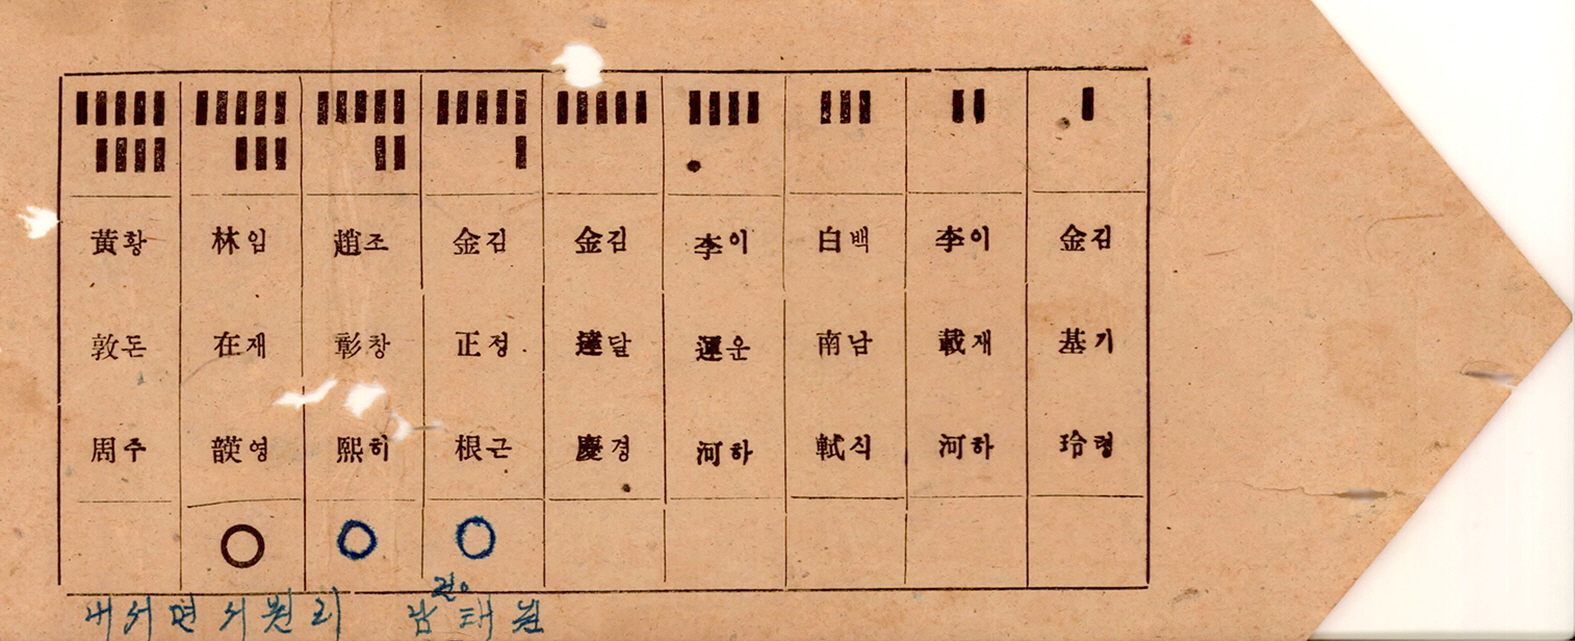 金김 基기 玲령
李이 載재 河하
白백 南남 軾식
李이 運운 河하
金김 達달 慶경
金김 正정 根근
趙조 彰창 熙히
林임 在재 韺영
黃황 敦돈 周주
내서면 서원리 남태원